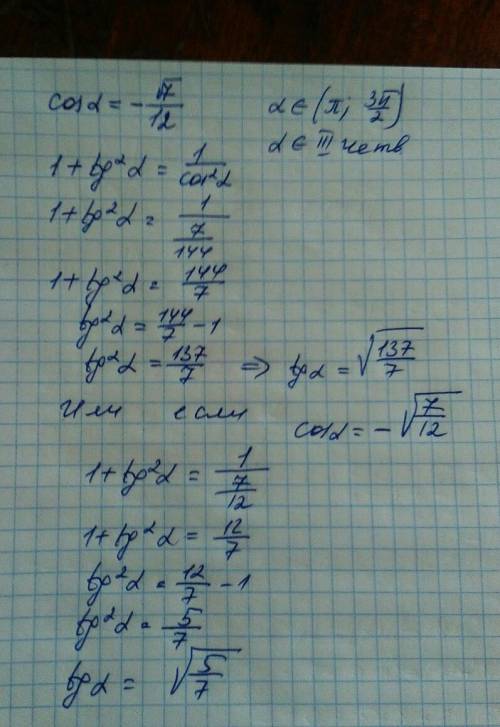 cosα = -√7/12    α ∈ (π; 3π/2)
α ∈ III четв
1 + tg²α = 1/cos²α
1 + tg²α = 1/(7/144)
1 + tg²α = 144/7
tg²α = 144/7 - 1
tg²α = 137/7 ⇒ tgα = √(137/7)
Или если cosα = -√(7/12)
1 + tg²α = 1/(7/12)
1 + tg²α = 12/7
tg²α = 12/7 - 1
tg²α = 5/7
tgα = √(5/7)